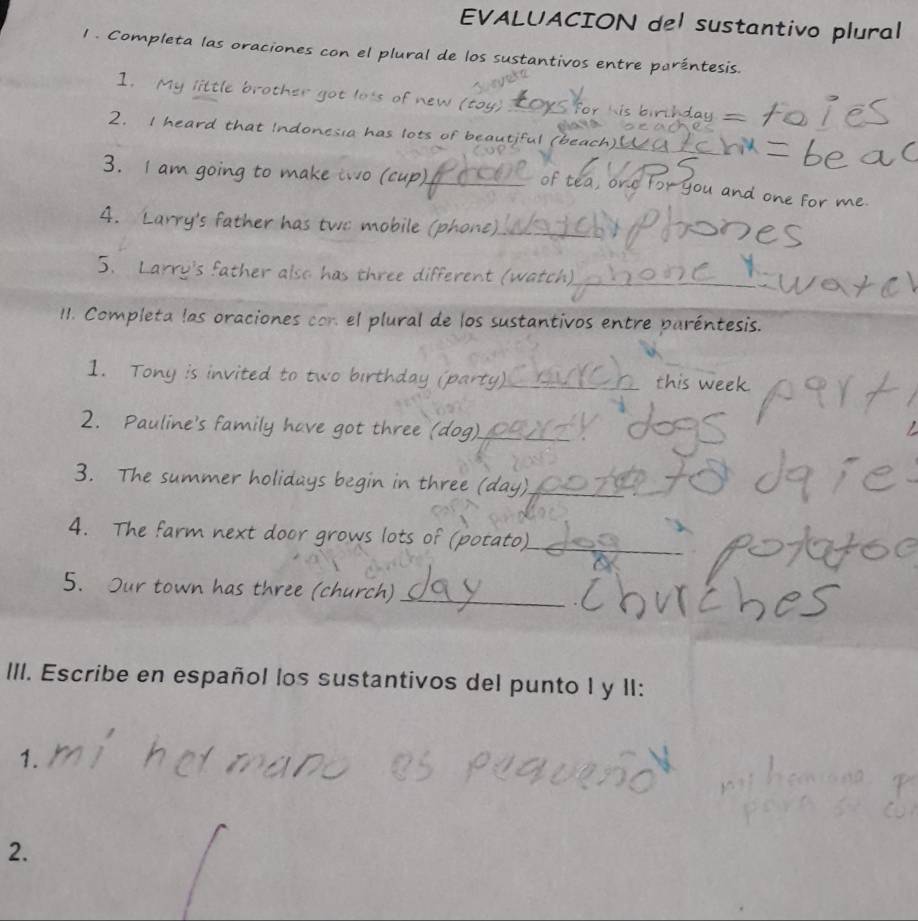 EVALUACION del sustantivo plural
1. Completa las oraciones con el plural de los sustantivos entre paréntesis.
1. My little brother got lots of new (toy) toys for his birthday = toies
playa beaches
2. I heard that Indonesia has lots of beautiful (beach) watch = beac
cups
3. I am going to make two (cup) of tea, one for you and one for me.
cups
4. Larry's father has two mobile (phone) watch phones
5. Larry's father also has three different (watch) phone watch
II. Completa las oraciones con el plural de los sustantivos entre paréntesis.
1. Tony is invited to two birthday (party) church this week. party
2. Pauline's family have got three (dog) party dogs
3. The summer holidays begin in three (day) daie
4. The farm next door grows lots of (potato) dog potatoe
churches
5. Our town has three (church) day churches
III. Escribe en español los sustantivos del punto I y II:
1. mi hermano es pequeño
2.